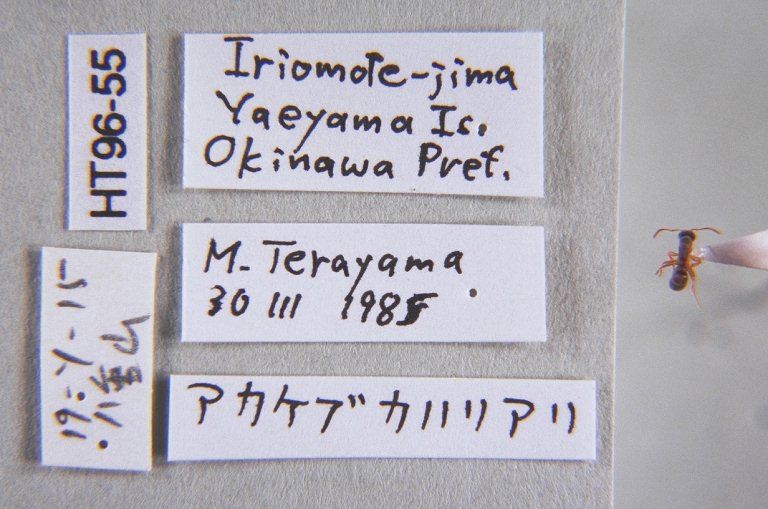 HT96-55
Iriomote-jima
Yaeyama Is.
Okinawa Pref.
M. Terayama
30 III 1985
アカケブカハリアリ
19:Y-15
八重山